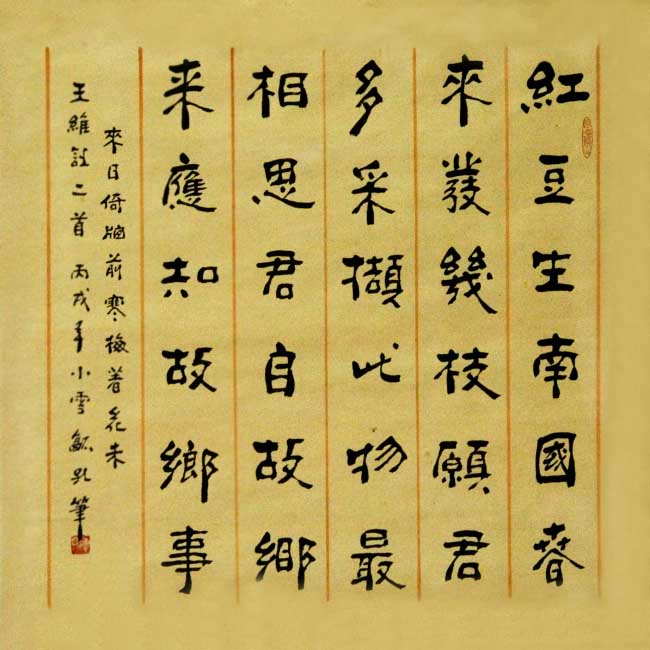 紅豆生南國春
來發幾枝願君
多采擷此物最
相思君自故鄉
来應知故鄉事
來日倚窗前寒梅著花未
王維詩二首 丙戌年小雪 孔筆